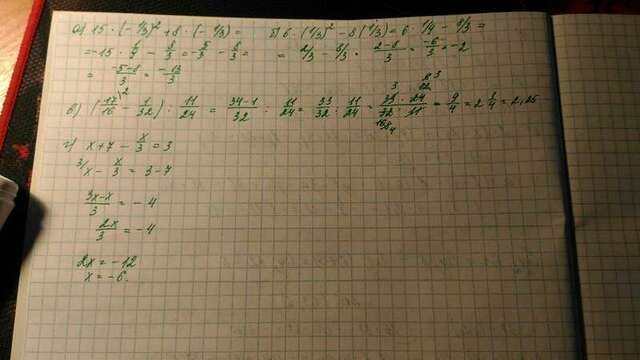 а) 15 · (-1/3)² + 8 · (-1/3) =
= -15 · - 8/3 = -5/3 - 8/3 =
= -5-8/3 = -13/3
б) 6 · (1/3)² - 8 (1/3) = 6 · 1/9 - 8/3 =
= 2/3 - 8/3 = 2-8/3 = -6/3 = -2
в) (17/16 \2 - 1/32) : 11/24 = 34-1/32 : 11/24 = 33/32 : 11/24 = 33 · 24/32 · 11 = 9/4 = 2 1/4 = 2,25
г) x + 7 - x/3 = 3
3/ x - x/3 = 3 - 7
3x-x/3 = -4
2x/3 = -4
2x = -12
x = -6.